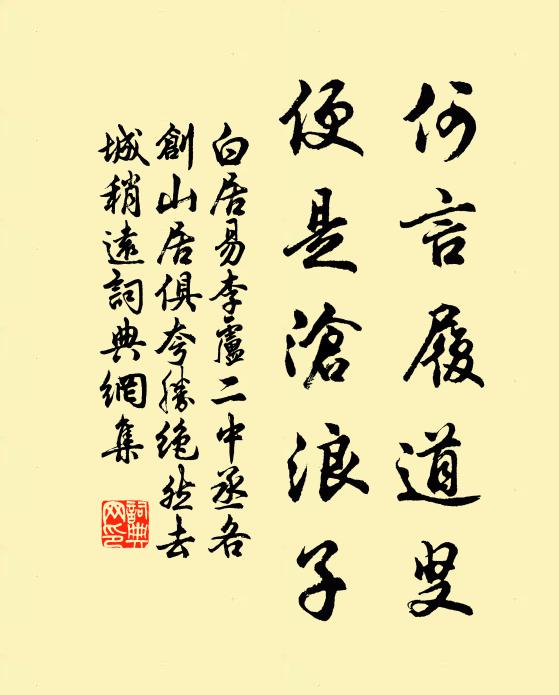 何言履道叟
便是滄浪子
白居易李盧二中丞各
創山居俱夸勝絶然去
城稍遠詞典網集
詞典
网印